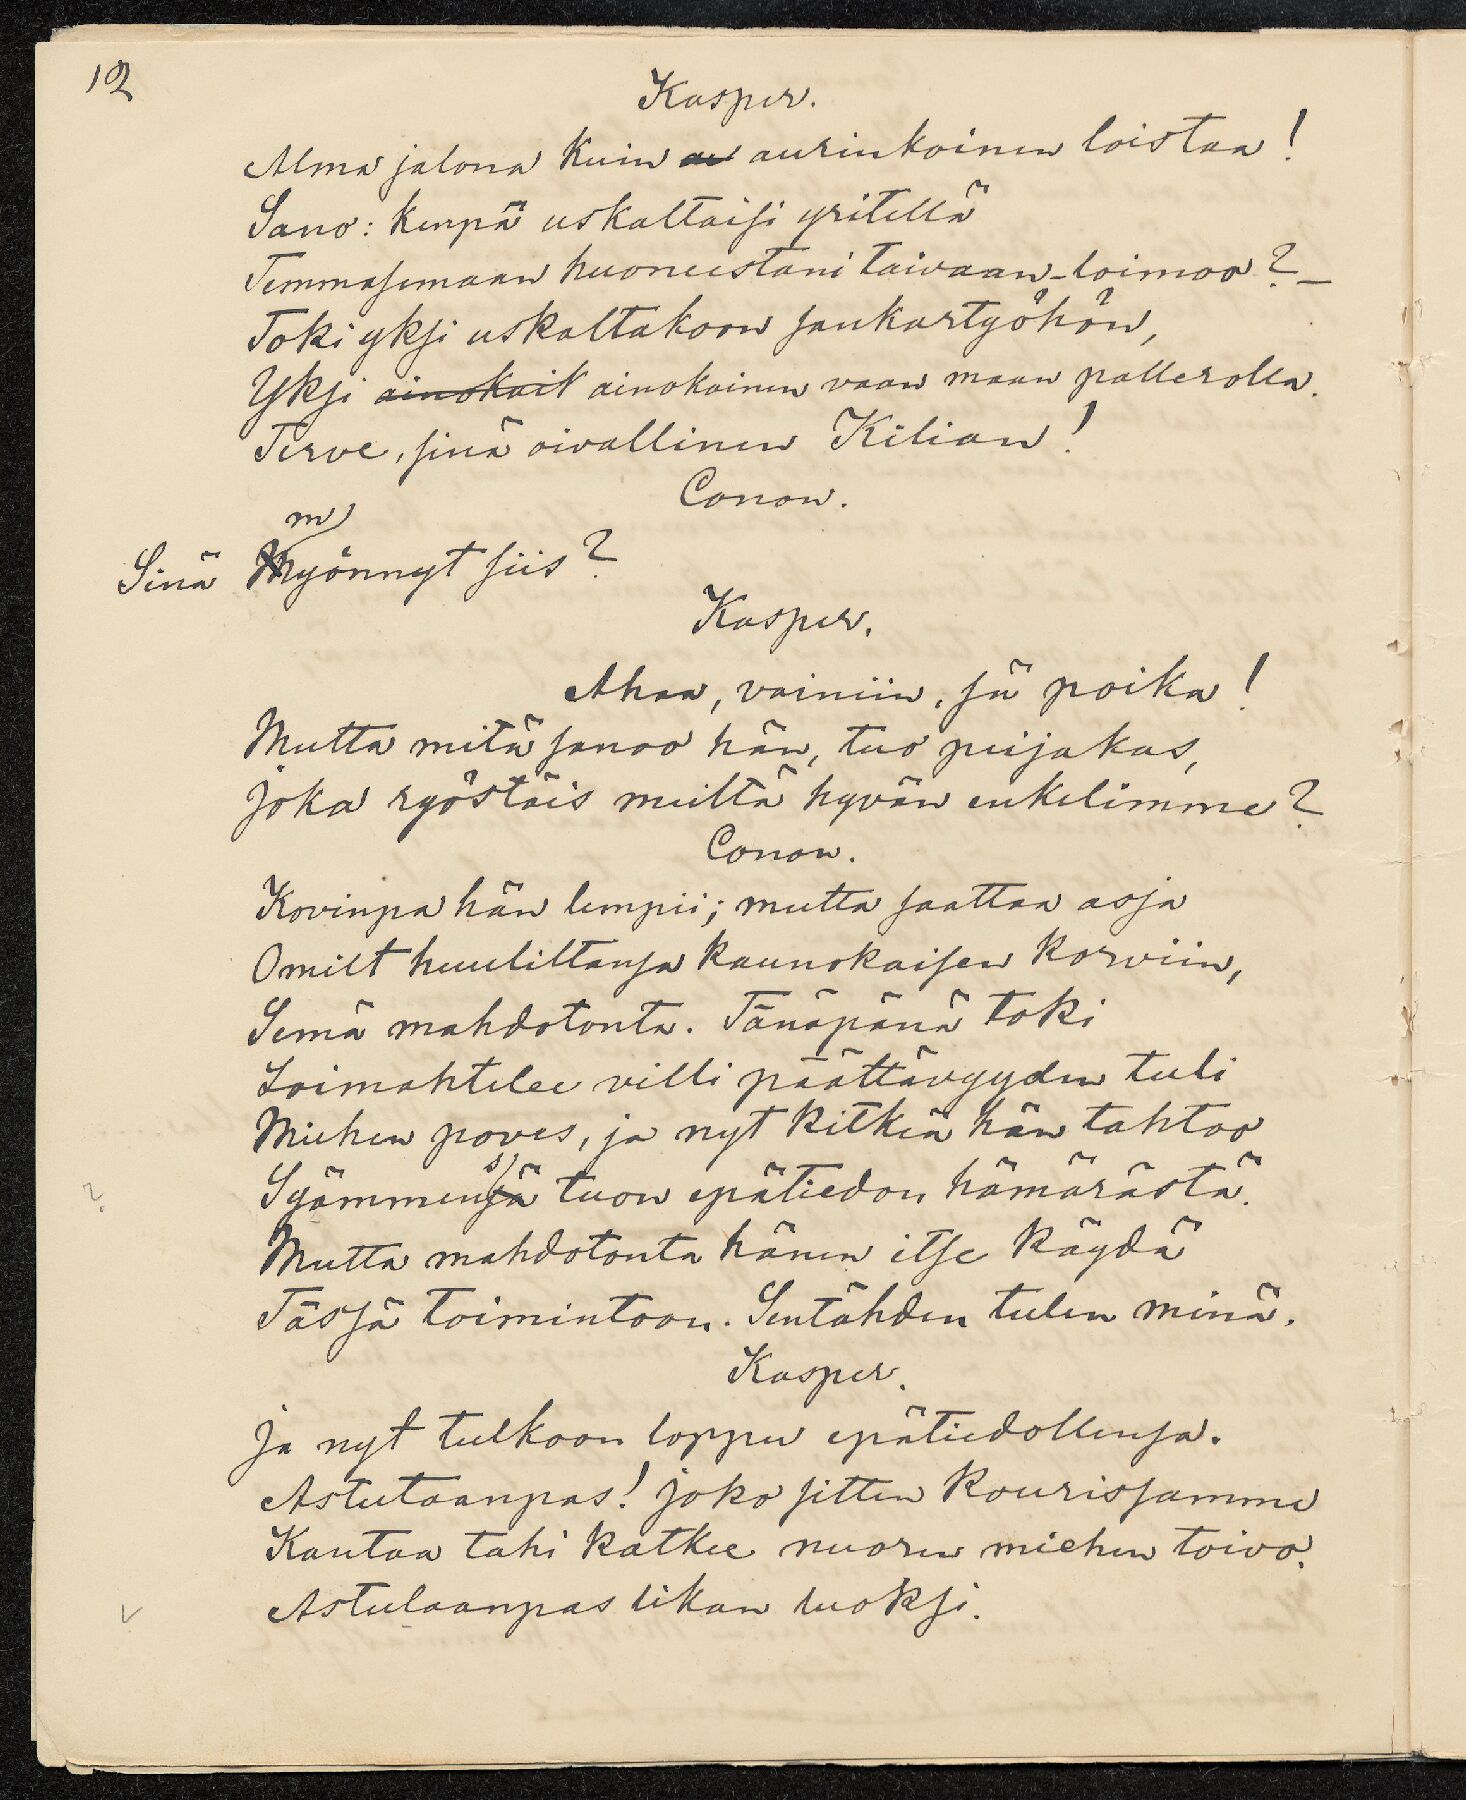 12
Kasper.
Alma jalona kuin au aurinkoinen loistaa!
Sano: kenpä uskaltaisi yritellä
Temmasemaan huoneestani taivaan-loimoo?—
Toki yksi uskaltakoon sankartyöhön,
Yksi ainokait ainokainen vaan maan pallerolla.
Terve, sinä oivallinen Kilian!
Conon.
m
Sinä Myönnyt siis?
Kasper.
Ahaa, vainiin, sä poika!
Mutta mitä sanoo hän, tuo peijakas,
joka ryöstäis meiltä hyvän enkelimme?
Conon.
Kovinpa hän lempii; mutta saattaa asja
Omilt huuliltansa kaunokaisen korviin,
Semä mahdotonta. Tänäpänä toki
Loimahtelee villi päättävyyden tuli
Miehen poves, ja nyt kitkeä hän tahtoo
s
? Syämmensä tuon epätiedon hämärästä.
Mutta mahdotonta hänen itse käydä
Tässä toimintoon. Sentähden tulen minä.
Kasper.
ja nyt tulkoon loppu epätiedollensa.
Astutaanpas! joko sitten kourissamme
Kantaa tahi katkee nuoren miehen toivo.
v Astulaanpas likan luoksi.